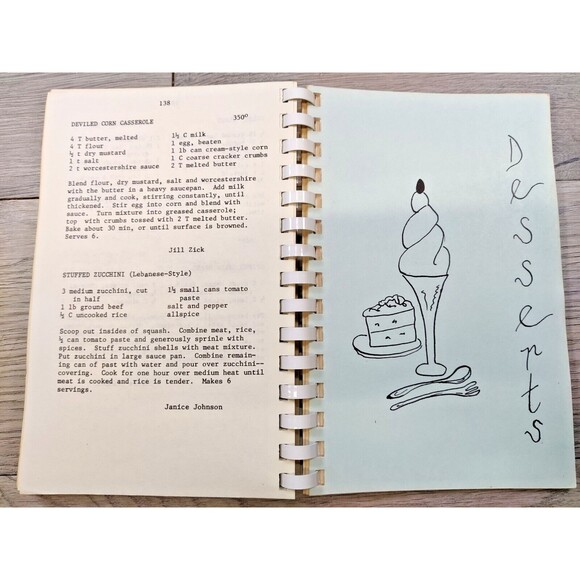 138
DEVILED CORN CASSEROLE 350°
4 T butter, melted 1½ C milk
4 T flour 1 egg, beaten
½ t dry mustard 1 lb can cream-style corn
1 t salt 1 C coarse cracker crumbs
2 t worcestershire sauce 2 T melted butter
Blend flour, dry mustard, salt and worcestershire
with the butter in a heavy saucepan. Add milk
gradually and cook, stirring constantly, until
thickened. Stir egg into corn and blend with
sauce. Turn mixture into greased casserole;
top with crumbs tossed with 2 T melted butter.
Bake about 30 min, or until surface is browned.
Serves 6.
Jill Zick
STUFFED ZUCCHINI (Lebanese-Style)
3 medium zucchini, cut 1½ small cans tomato
in half paste
1 lb ground beef salt and pepper
½ C uncooked rice allspice
Scoop out insides of squash. Combine meat, rice,
½ can tomato paste and generously sprinle with
spices. Stuff zucchini shells with meat mixture.
Put zucchini in large sauce pan. Combine remain-
ing can of past with water and pour over zucchini--
covering. Cook for one hour over medium heat until
meat is cooked and rice is tender. Makes 6
servings.
Janice Johnson
Desserts